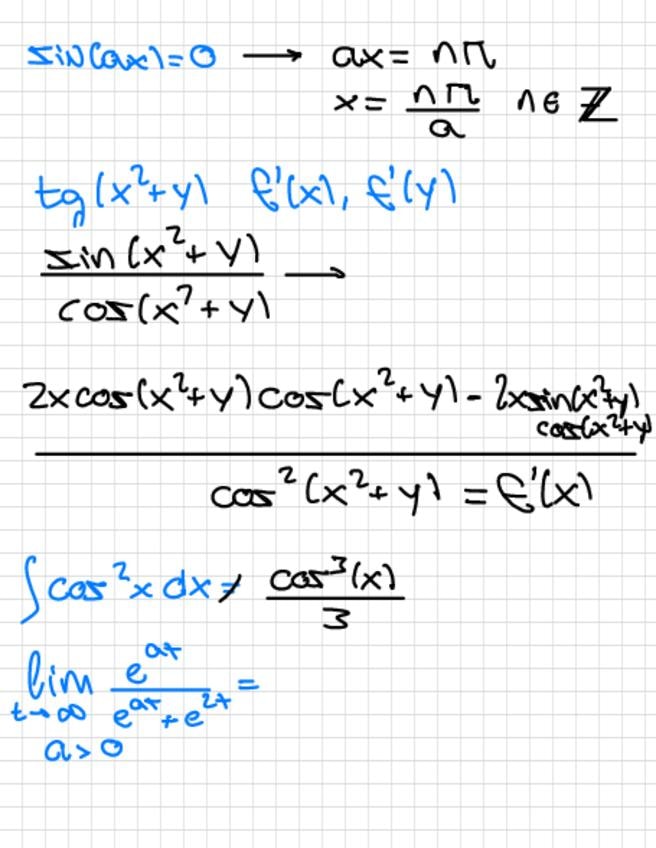 sin(ax)=0 → ax = nπ
x = nπ/a n ∈ ℤ
tg(x²+y) f'(x), f'(y)
sin(x²+y)/cos(x²+y) →
2xcos(x²+y)cos(x²+y) - 2xsin(x²+y)
cos(x²+y)
cos²(x²+y) = f'(x)
∫cos²x dx ≠ cos³(x)/3
lim e^(at)/(e^(at)+e^(2t)) =
t→∞
a>0